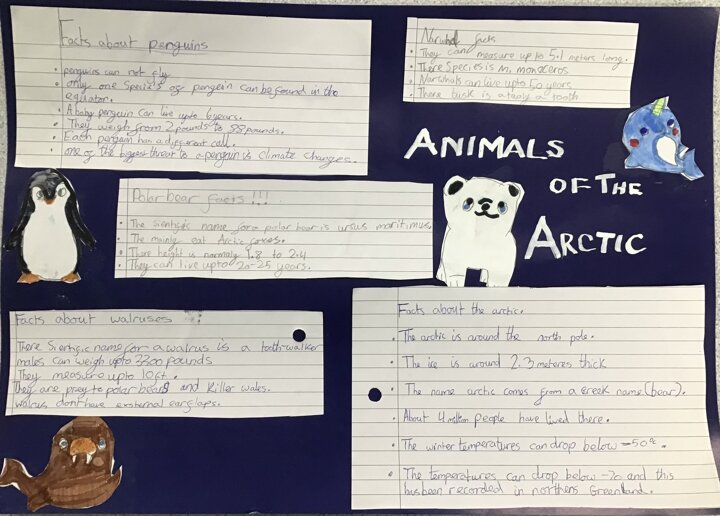 Facts about penguins
• penguins can not fly
• only one species of pengein can be found in the
equator.
• A baby penguin can live upto 6 years.
• They weigh from 2 pounds to 88 pounds.
• Each penguin has a different call.
• one of the biggest threat to a penguin is climate changes.
Narwhal facts
• They can measure up to 5.1 meters long.
• There Species is M. monoceros
• Narwhals can live upto 50 years
• There tusk is a tooth
ANIMALS
OF THE
ARCTIC
Polar bear facts !!!
• The sientific name for a polar bear is ursus maritimus.
• The mainly eat Arctic
• There height is normaly 1.8 to 2.4
• They can live upto 20-25 years.
Facts about walruses
There Sientific name for a walrus is a tooth-walker
males can weigh upto 3300 pounds
They measure upto 10ft.
They are prey to polar bears and killer wales.
walrus dont have exsternal earflaps.
Facts about the arctic.
• The arctic is around the north pole.
• The ice is around 2.3 meteres thick
• The name arctic comes from a Greek name (bear).
• About 4 million people have lived there.
• The winter temperatures can drop below -50°c.
• The temperatures can drop below -70 and this
has been recorded in northens Greenland.